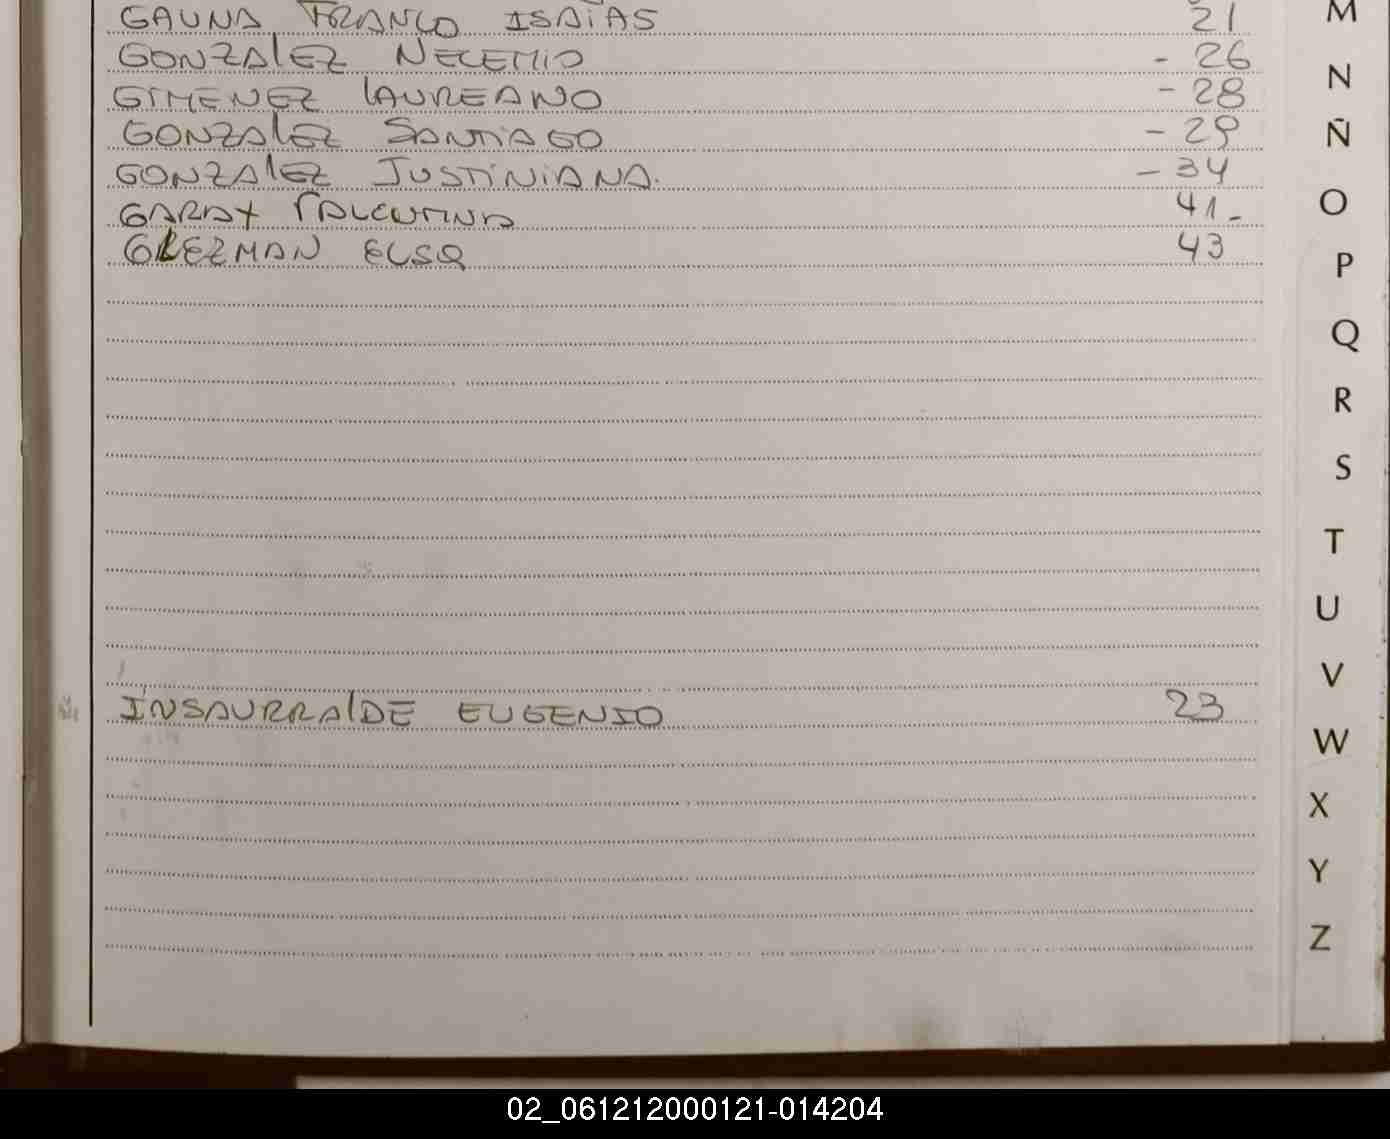 GAUNA FRANCO ISAÍAS 21
GONZALEZ NECEMIO - 26
GIMENEZ LAUREANO - 28
GONZALEZ SANTIAGO - 29
GONZALEZ JUSTINIANA. - 34
GARAY VALENTINA 41-
GLEZMAN ELSA 43
INSAURRALDE EUGENIO 23
M
N
Ñ
O
P
Q
R
S
T
U
V
W
X
Y
Z
02_061212000121-014204